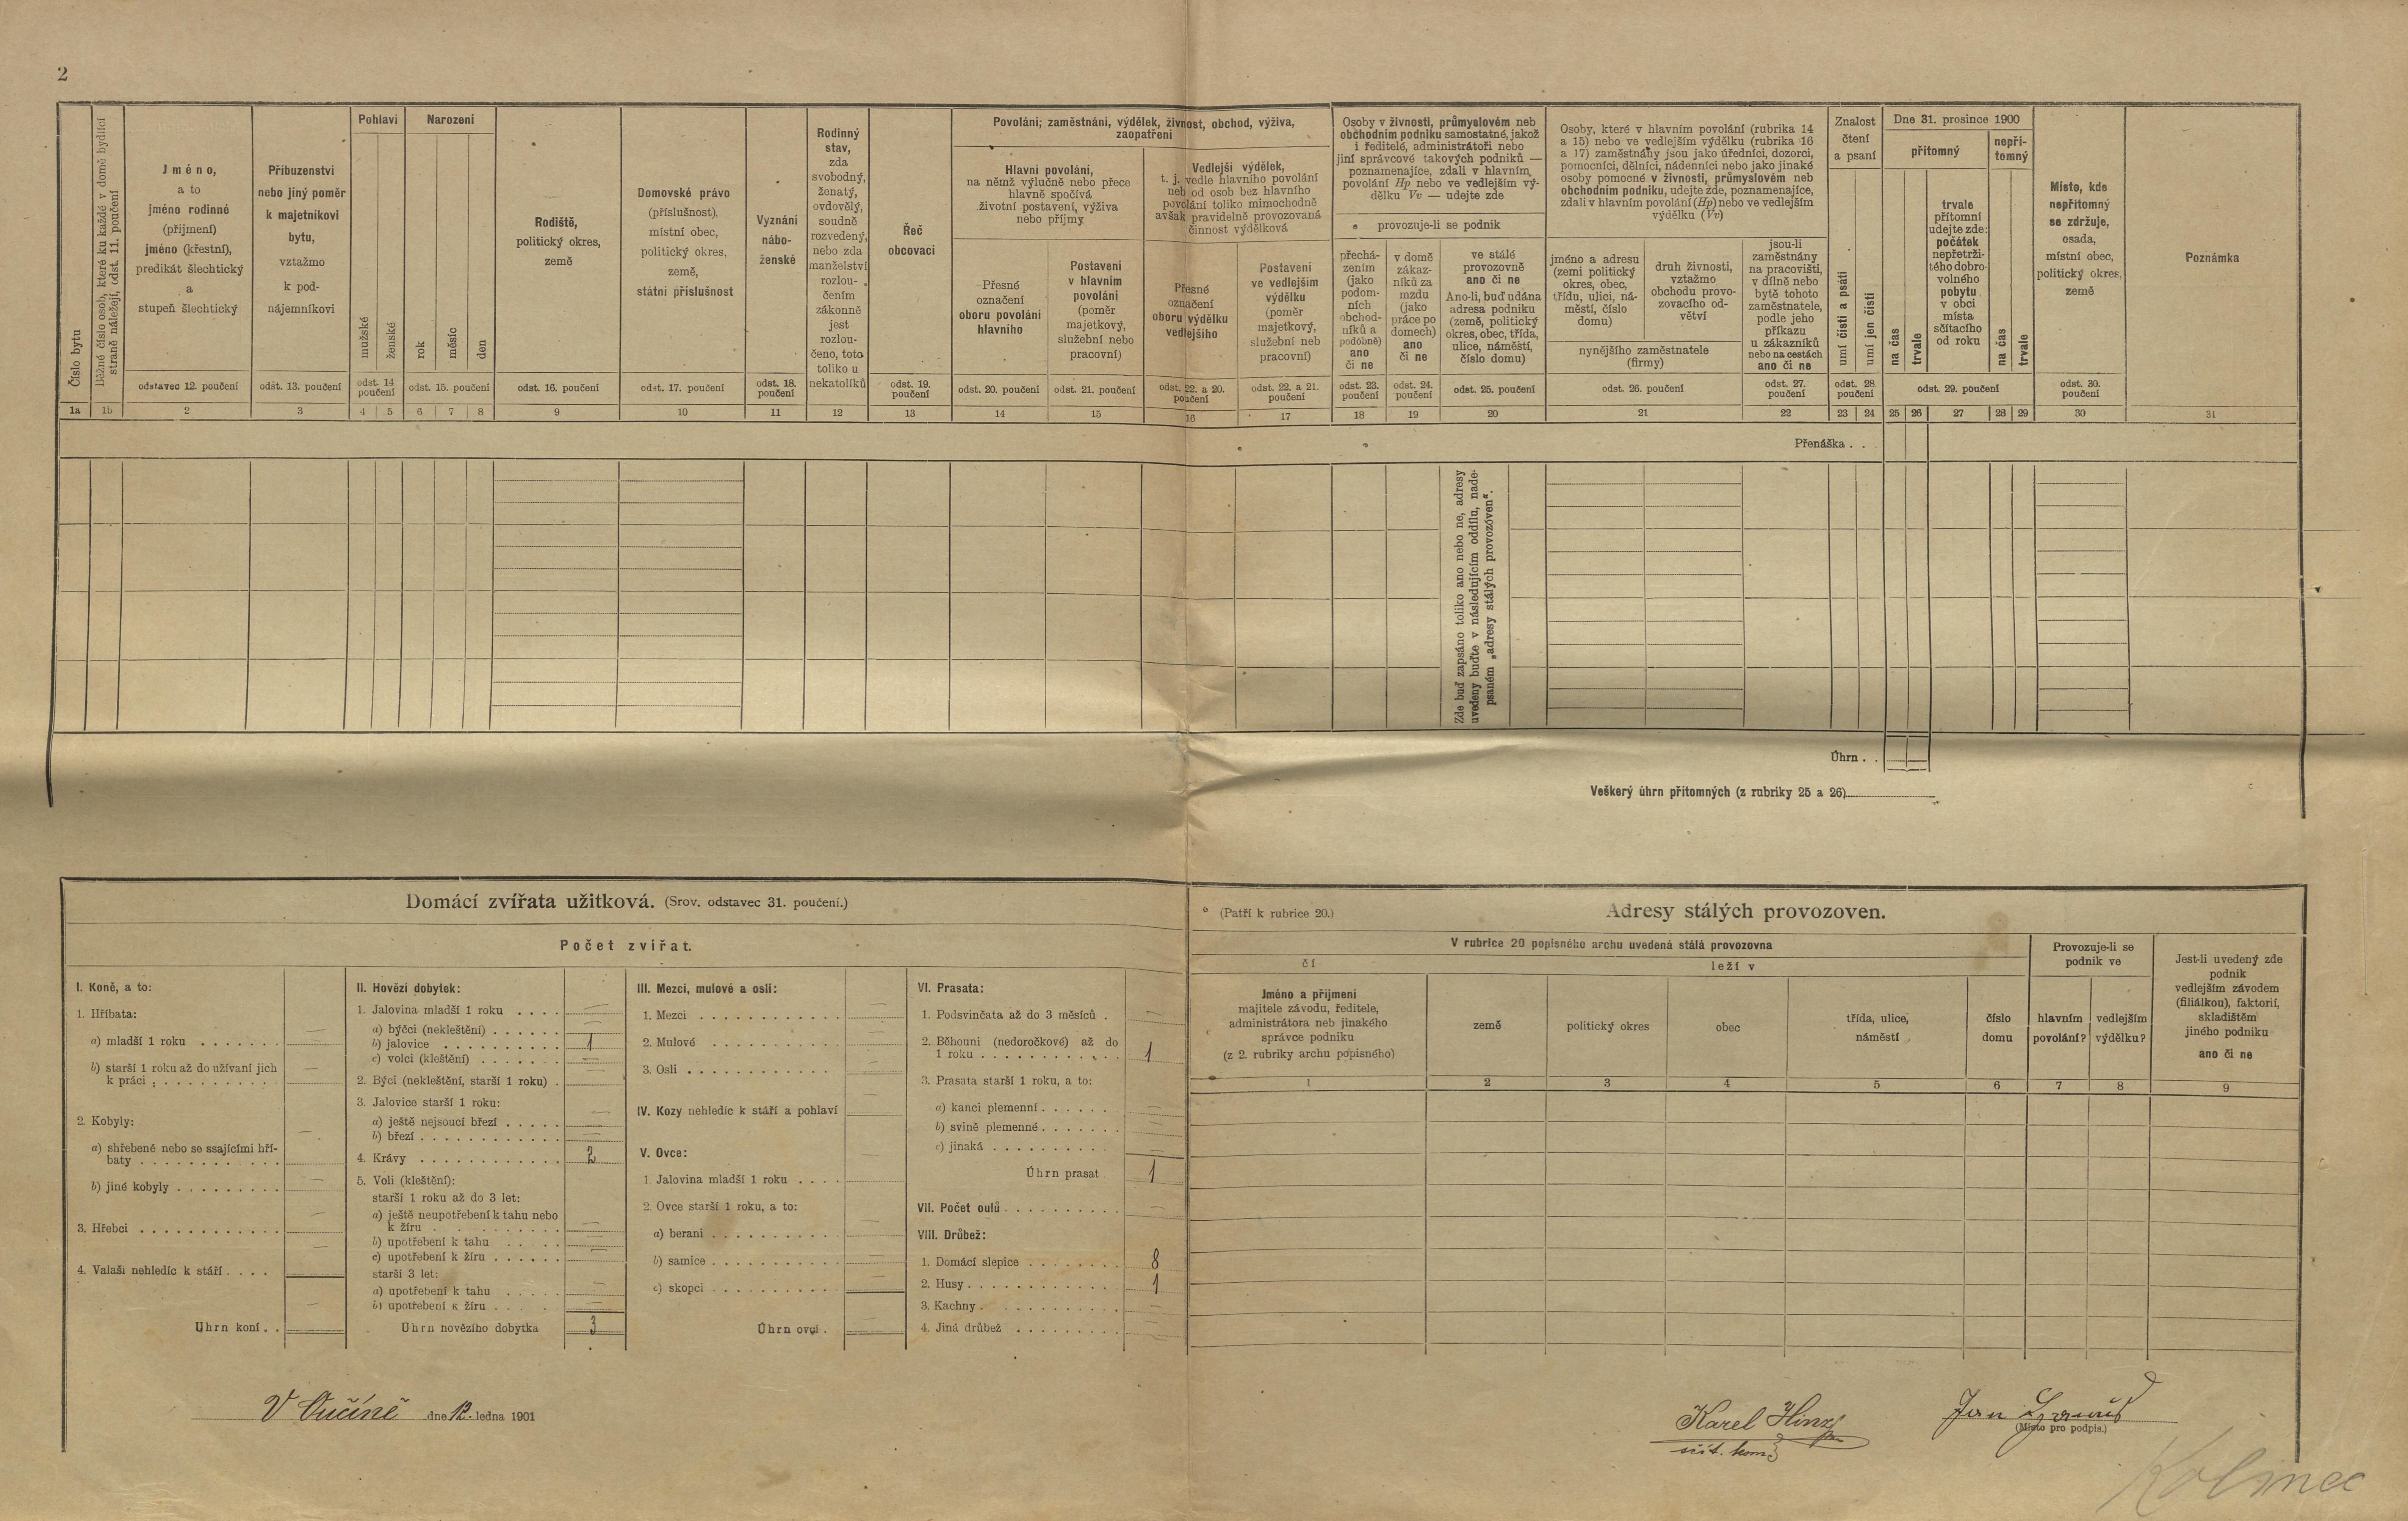 2
Číslo bytu
Běžné číslo osob, které ku každé v domě bydlící
straně náležejí, odst. 11. poučení
Jméno,
a to
jméno rodinné
(přijmení)
jméno (křestní),
predikát šlechtický
a
stupeň šlechtický
odstavec 12. poučení
Příbuzenství
nebo jiný poměr
k majetníkovi
bytu,
vztažmo
k pod-
nájemníkovi
odst. 13. poučení
Pohlaví
mužské
ženské
odst. 14
poučení
Narození
rok
měsíc
den
odst. 15. poučení
Rodiště,
politický okres,
země
odst. 16. poučení
Domovské právo
(příslušnost),
místní obec,
politický okres,
země,
státní příslušnost
odst. 17. poučení
Vyznání
nábo-
ženské
odst. 18.
poučení
Rodinný
stav,
zda
svobodný,
ženatý,
ovdovělý,
soudně
rozvedený,
nebo zda
manželství
rozlou-
čením
zákonně
jest
rozlou-
čeno, toto
toliko u
nekatolíků
Řeč
obcovací
odst. 19.
poučení
Povolání; zaměstnání, výdělek, živnost, obchod, výživa,
zaopatření
Hlavní povolání,
na němž výlučně nebo přece
hlavně spočívá
životní postavení, výživa
nebo příjmy
Přesné
označení
oboru povolání
hlavního
odst. 20. poučení
Postavení
v hlavním
povolání
(poměr
majetkový,
služební nebo
pracovní)
odst. 21. poučení
Vedlejší výdělek,
t. j. vedle hlavního povolání
neb od osob bez hlavního
povolání toliko mimochodně
avšak pravidelně provozovaná
činnost výdělková
Přesné
označení
oboru výdělku
vedlejšího
odst. 22. a 20.
poučení
Postavení
ve vedlejším
výdělku
(poměr
majetkový,
služební neb
pracovní)
odst. 22. a 21.
poučení
Osoby v živnosti, průmyslovém neb
obchodním podniku samostatné, jakož
i ředitelé, administrátoři nebo
jiní správcové takových podniků —
poznamenajíce, zdali v hlavním
povolání Hp nebo ve vedlejším vý-
dělku Vv — udejte zde
provozuje-li se podnik
přechá-
zením
(jako
podom-
ních
obchod-
níků a
podobně)
ano
či ne
odst. 23.
poučení
v domě
zákaz-
níků za
mzdu
(jako
práce po
domech)
ano
či ne
odst. 24.
poučení
ve stálé
provozovně
ano či ne
Ano-li, buď udána
adresa podniku
(země, politický
okres, obec, třída,
ulice, náměstí,
číslo domu)
odst. 25. poučení
Osoby, které v hlavním povolání (rubrika 14
a 15) nebo ve vedlejším výdělku (rubrika 16
a 17) zaměstnány jsou jako úředníci, dozorci,
pomocníci, dělníci, nádenníci nebo jako jinaké
osoby pomocné v živnosti, průmyslovém neb
obchodním podniku, udejte zde, poznamenajíce,
zdali v hlavním povolání (Hp) nebo ve vedlejším
výdělku (Vv)
jméno a adresu
(zemi politický
okres, obec,
třídu, ulici, ná-
městí, číslo
domu)
druh živnosti,
vztažmo
obchodu provo-
zovacího od-
větví
nynějšího zaměstnatele
(firmy)
odst. 26. poučení
jsou-li
zaměstnány
na pracovišti,
v dílně nebo
bytě tohoto
zaměstnatele,
podle jeho
příkazu
u zákazníků
nebo na cestách
ano či ne
odst. 27.
poučení
Znalost
čtení
a psaní
umí čísti a psáti
umí jen čísti
odst. 28.
poučení
Dne 31. prosince 1900
přítomný
na čas
trvale
trvale
přítomní
udejte zde:
počátek
nepřetrži-
tého dobro-
volného
pobytu
v obci
místa
sčítacího
od roku
nepří-
tomný
na čas
trvale
odst. 29. poučení
Místo, kde
nepřítomný
se zdržuje,
osada,
místní obec,
politický okres,
země
odst. 30.
poučení
Poznámka
1a 1b 2 3 4 5 6 7 8 9 10 11 12 13 14 15 16 17 18 19 20 21 22 23 24 25 26 27 28 29 30 31
Přenáška . .
Zde buď zapsáno toliko ano nebo ne, adresy
uvedeny buďte v následujícím oddílu, nade-
psaném „adresy stálých provozóven“.
Úhrn . .
Veškerý úhrn přítomných (z rubriky 25 a 26)
Domácí zvířata užitková. (Srov. odstavec 31. poučení.)
Počet zvířat.
I. Koně, a to:
1. Hříbata:
a) mladší 1 roku —
b) starší 1 roku až do užívaní jich
k práci —
2. Kobyly:
a) shřebené nebo se ssajícími hří-
baty —
b) jiné kobyly —
3. Hřebci —
4. Valaši nehledíc k stáří —
Úhrn koní —
II. Hovězí dobytek:
1. Jalovina mladší 1 roku —
a) býčci (nekleštění) —
b) jalovice 1
c) volci (kleštění) —
2. Býci (nekleštění, starší 1 roku) —
3. Jalovice starší 1 roku:
a) ještě nejsoucí březí —
b) březí —
4. Krávy 2
5. Voli (kleštění):
starší 1 roku až do 3 let:
a) ještě neupotřebení k tahu nebo
k žíru —
b) upotřebení k tahu —
c) upotřebení k žíru —
starší 3 let:
a) upotřebení k tahu —
b) upotřebení k žíru —
Úhrn hovězího dobytka 3
III. Mezci, mulové a osli:
1. Mezci —
2. Mulové —
3. Osli —
IV. Kozy nehledíc k stáří a pohlaví —
V. Ovce:
1. Jalovina mladší 1 roku —
2. Ovce starší 1 roku, a to:
a) berani —
b) samice —
c) skopci —
Úhrn ovcí —
VI. Prasata:
1. Podsvinčata až do 3 měsíců —
2. Běhouni (nedoročkové) až do
1 roku 1
3. Prasata starší 1 roku, a to:
a) kanci plemenní —
b) svině plemenné —
c) jinaká —
Úhrn prasat 1
VII. Počet oulů —
VIII. Drůbež:
1. Domácí slepice 8
2. Husy 1
3. Kachny —
4. Jiná drůbež —
(Patří k rubrice 20.)
Adresy stálých provozoven.
V rubrice 20 popisného archu uvedená stálá provozovna
čí
leží v
Jméno a přijmení
majitele závodu, ředitele,
administrátora neb jinakého
správce podniku
(z 2. rubriky archu popisného)
země
politický okres
obec
třída, ulice,
náměstí
číslo
domu
Provozuje-li se
podnik ve
hlavním
povolání?
vedlejším
výdělku?
Jest-li uvedený zde
podnik
vedlejším závodem
(filiálkou), faktorií,
skladištěm
jiného podniku
ano či ne
1 2 3 4 5 6 7 8 9
V Sučíně dne 12. ledna 1901
Karel Hinz
sčít. kom.
Jan
(Místo pro podpis.)
Kolinec